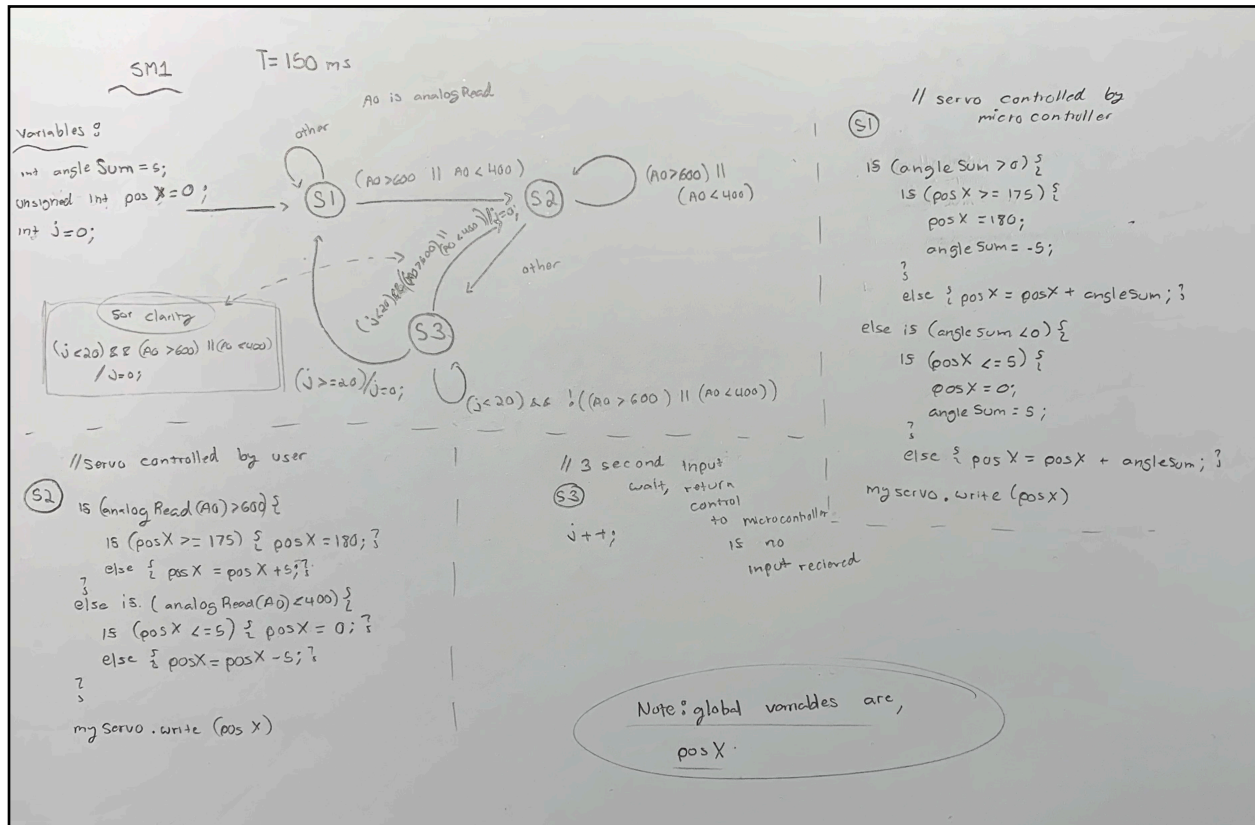 SM1
T=150 ms
A0 is analogRead
Variables:
int angleSum = 5;
unsigned int posX=0;
int j=0;
other
S1
(A0>600 || A0<400)
S2
(A0>600) ||
(A0<400)
(j<20)&&((A0>600) ||
(A0<400))/j=0;
other
S3
for clarity
(j<20) && (A0>600) ||(A0<400)
/j=0;
(j>=20)/j=0;
(j<20) && !((A0>600) || (A0<400))
// servo controlled by
micro controller
S1
if (angleSum>0) {
if (posX >= 175) {
posX =180;
angleSum= -5;
}
else { posX = posX + angleSum; }
else if (angleSum<0) {
if (posX <= 5) {
posX = 0;
angleSum = 5;
}
else { posX = posX + angleSum; }
myservo.write (posX)
//Servo controlled by user
S2
if (analogRead(A0)>600) {
if (posX >= 175) { posX =180; }
else { posX = posX +5; }
}
else if (analogRead(A0)<400) {
if (posX <=5) { posX = 0; }
else { posX = posX -5; }
}
myservo.write (posX)
// 3 second input
wait, return
control
to microcontroller
if no
input recieved
S3
j++;
Note: global variables are,
posX.